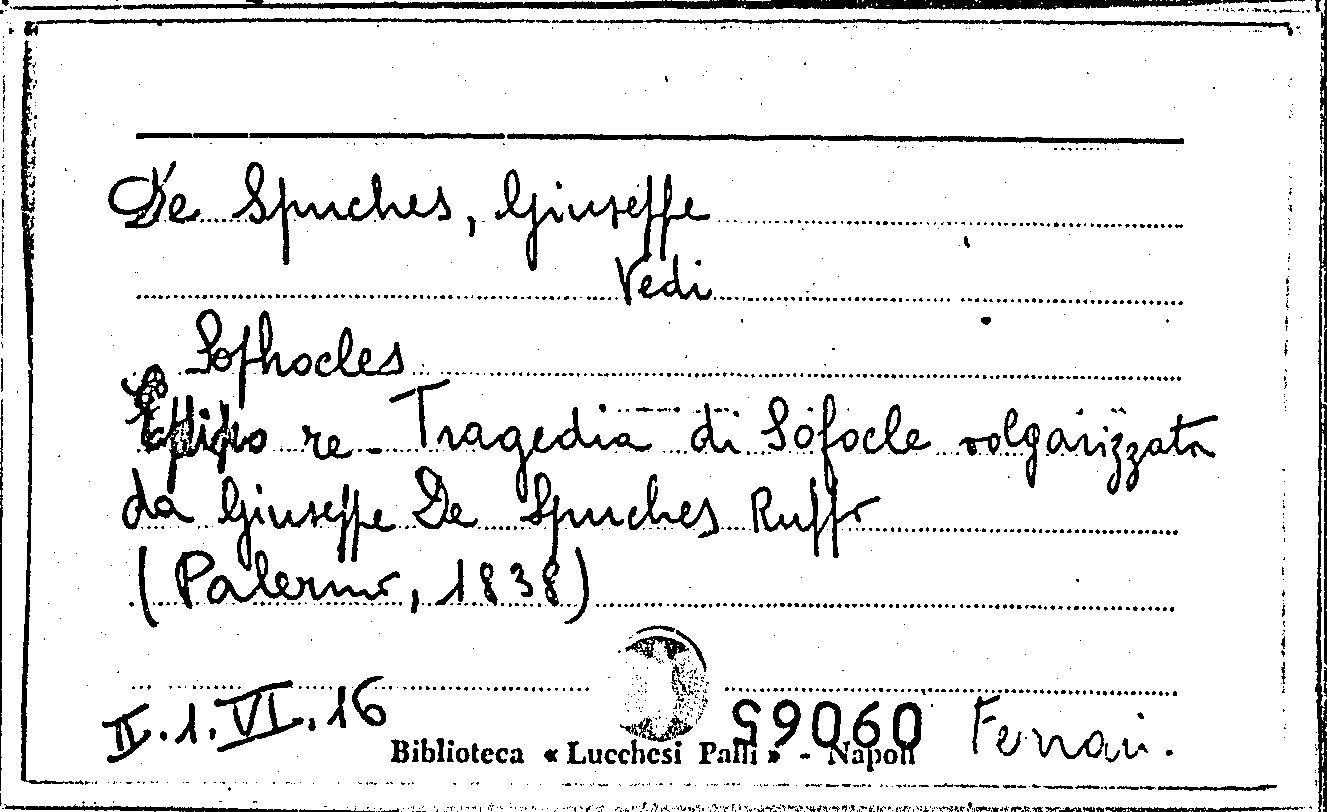 De Spuches, Giuseppe
Vedi
Sophocles
Edipo re - Tragedia di Sofocle volgarizzata
da Giuseppe De Spuches Ruffo
(Palermo, 1838)
II.1.VI.16
59060 Ferrari.
Biblioteca « Lucchesi Palli » - Napoli